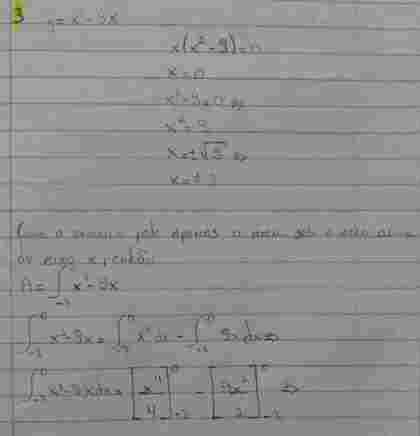 3 y = x³ - 9x
x(x² - 9) = 0
x = 0
x² - 9 = 0 ⇒
x² = 9
x = ±√9 ⇒
x = ± 3
Como o enunciado pede apenas a área sob e
ao eixo x, então:
A = ∫₋₃⁰ x³ - 9x
∫₋₃⁰ x³ - 9x = ∫₋₃⁰ x³ dx - ∫₋₃⁰ 9x dx ⇒
∫₋₃⁰ x³ - 9x dx = [x⁴/4]₋₃⁰ - [9x²/2]₋₃⁰ ⇒